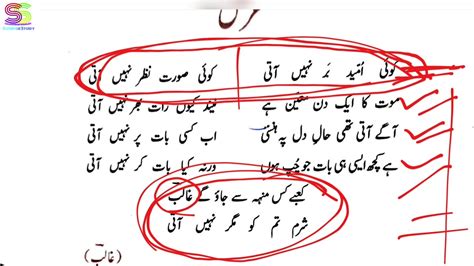 غزل
کوئی اُمید بَر نہیں آتی کوئی صورت نظر نہیں آتی
موت کا ایک دن معیّن ہے نیند کیوں رات بھر نہیں آتی
آگے آتی تھی حالِ دل پہ ہنسی اب کسی بات پر نہیں آتی
ہے کچھ ایسی ہی بات جو چُپ ہوں ورنہ کیا بات کر نہیں آتی
کعبے کس منہہ سے جاؤ گے غالبؔ
شرم تم کو مگر نہیں آتی
(غالبؔ)